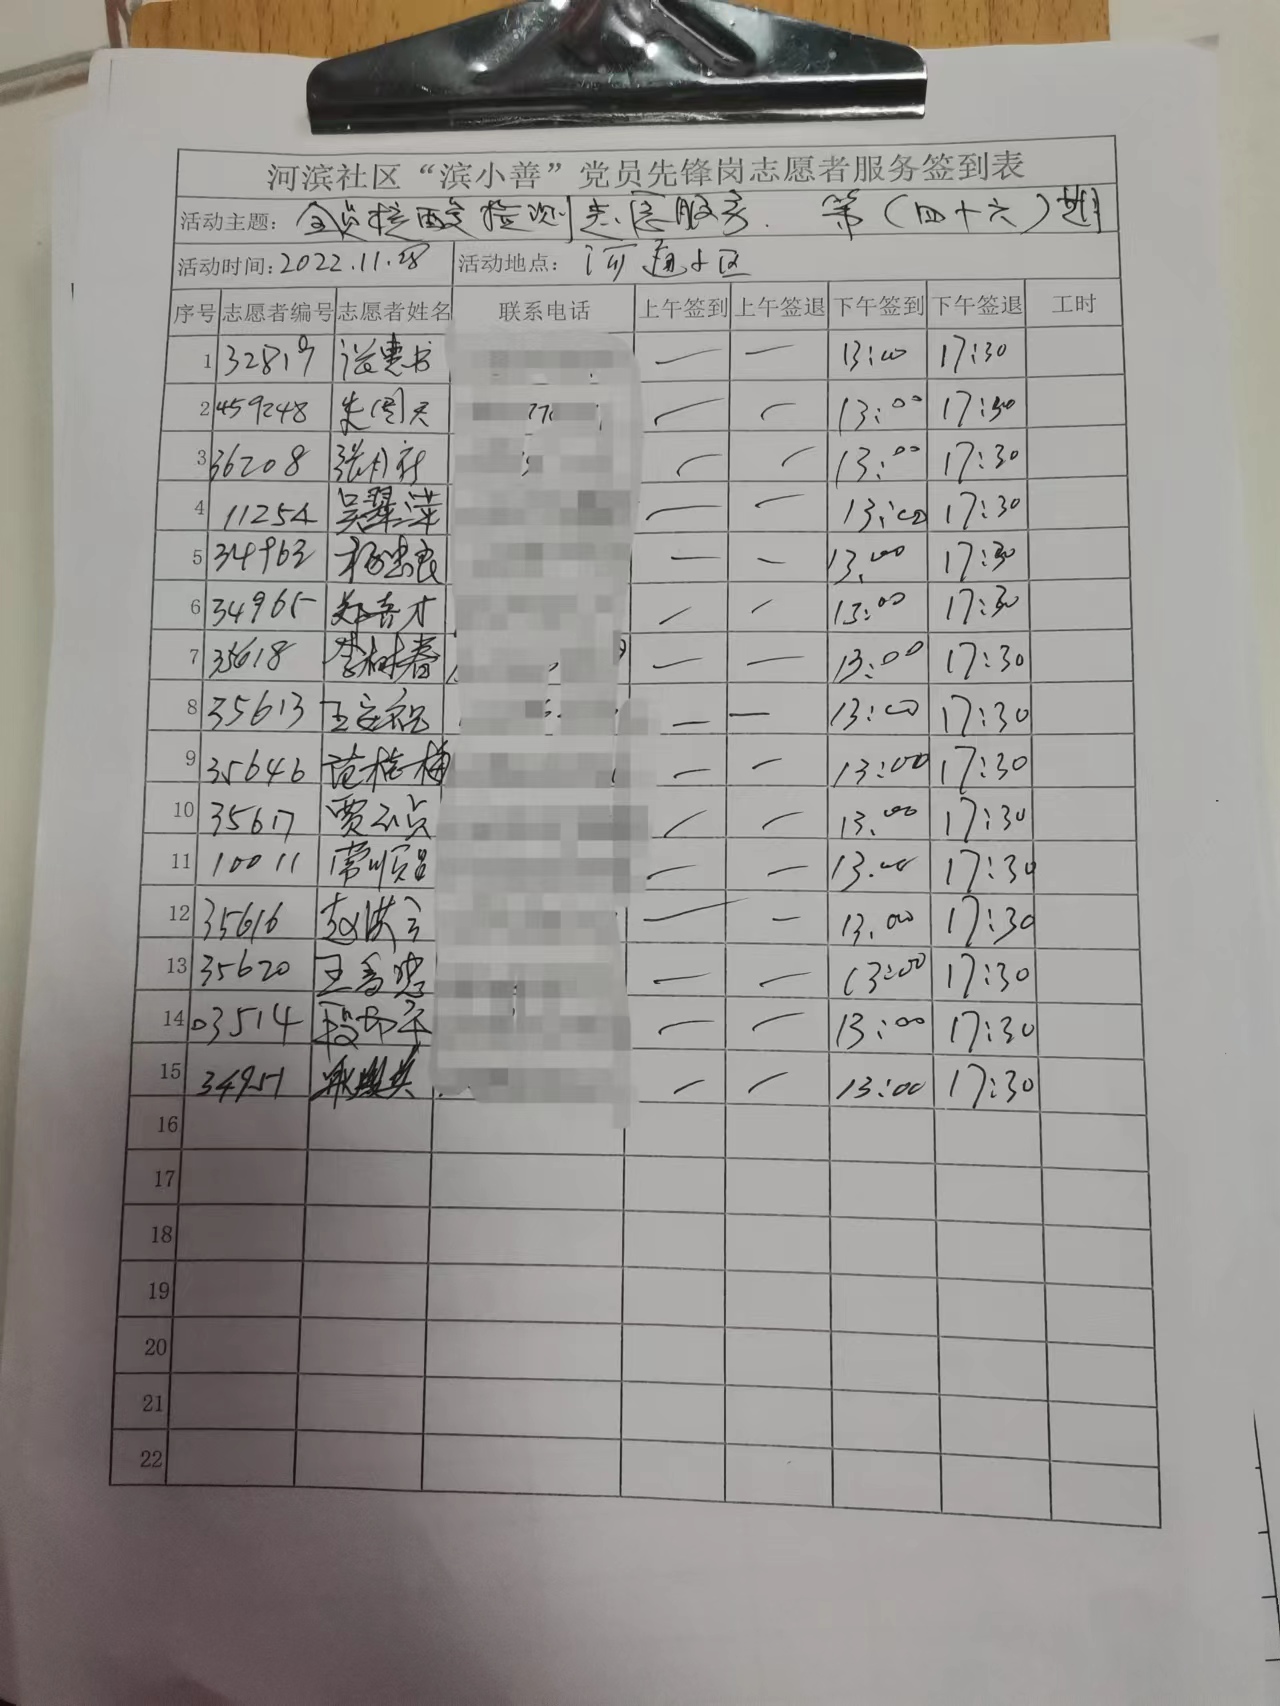 河滨社区“滨小善”党员先锋岗志愿者服务签到表
活动主题: 全员核酸检测志愿服务. 第(四十六)期
活动时间: 2022.11.28 活动地点: 河通小区
序号 志愿者编号 志愿者姓名 联系电话 上午签到 上午签退 下午签到 下午签退 工时
1 32819 — — 13:00 17:30
2 459248 朱国天 — — 13:00 17:30
3 36208 张月新 — — 13:00 17:30
4 11254 吴翠萍 — — 13:00 17:30
5 34963 杨忠良 — — 13:00 17:30
6 34965 郑喜才 — — 13:00 17:30
7 35618 李树春 — — 13:00 17:30
8 35613 — — 13:00 17:30
9 35646 范桂梅 — — 13:00 17:30
10 35617 贾 — — 13:00 17:30
11 10011 常顺昌 — — 13:00 17:30
12 35616 赵洪 — — 13.00 17:30
13 35620 王 — — 13:00 17:30
14 03514 段 — — 13:00 17:30
15 34951 — — 13:00 17:30
16
17
18
19
20
21
22